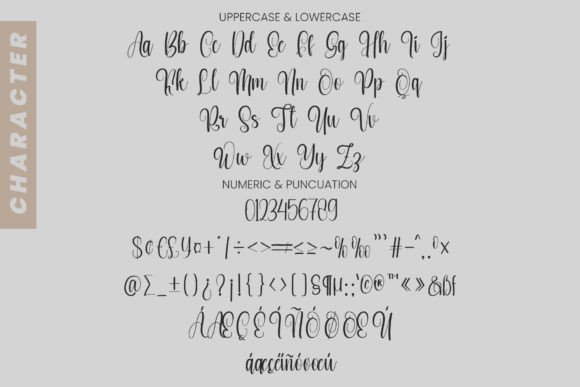 CHARACTER
UPPERCASE & LOWERCASE
Aa Bb Cc Dd Ee Ff Gg Hh Ii Jj
Kk Ll Mm Nn Oo Pp Qq
Rr Ss Tt Uu Vv
Ww Xx Yy Zz
NUMERIC & PUNCUATION
0123456789
$¢£¥¤+·/÷<>=≠≤≥~%‰"'#-^,.ºx
@∑_±()¿?¡!{}<>[]§¶µ:;'©®™«»&
ÁÆÇÉÍÑÓØŒÚ
áæçéíñóøœú